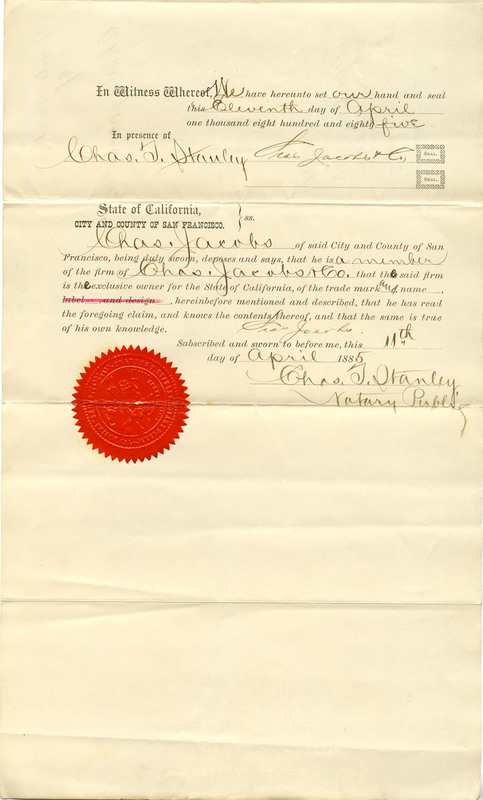 In Witness Whereof, We have hereunto set our hand and seal
this Eleventh day of April
one thousand eight hundred and eighty five
In presence of
Chas. T. Stanley Chas Jacobs & Co. SEAL.
SEAL.
State of California,
CITY AND COUNTY OF SAN FRANCISCO. } ss.
Chas. Jacobs of said City and County of San
Francisco, being duly sworn, deposes and says, that he is a member
of the firm of Chas. Jacobs & Co. that the said firm
is the exclusive owner for the State of California, of the trade mark and name
label and design, hereinbefore mentioned and described, that he has read
the foregoing claim, and knows the contents thereof, and that the same is true
of his own knowledge. Chas Jacobs.
Subscribed and sworn to before me, this 11th
day of April 1885
Chas. T. Stanley
Notary Public